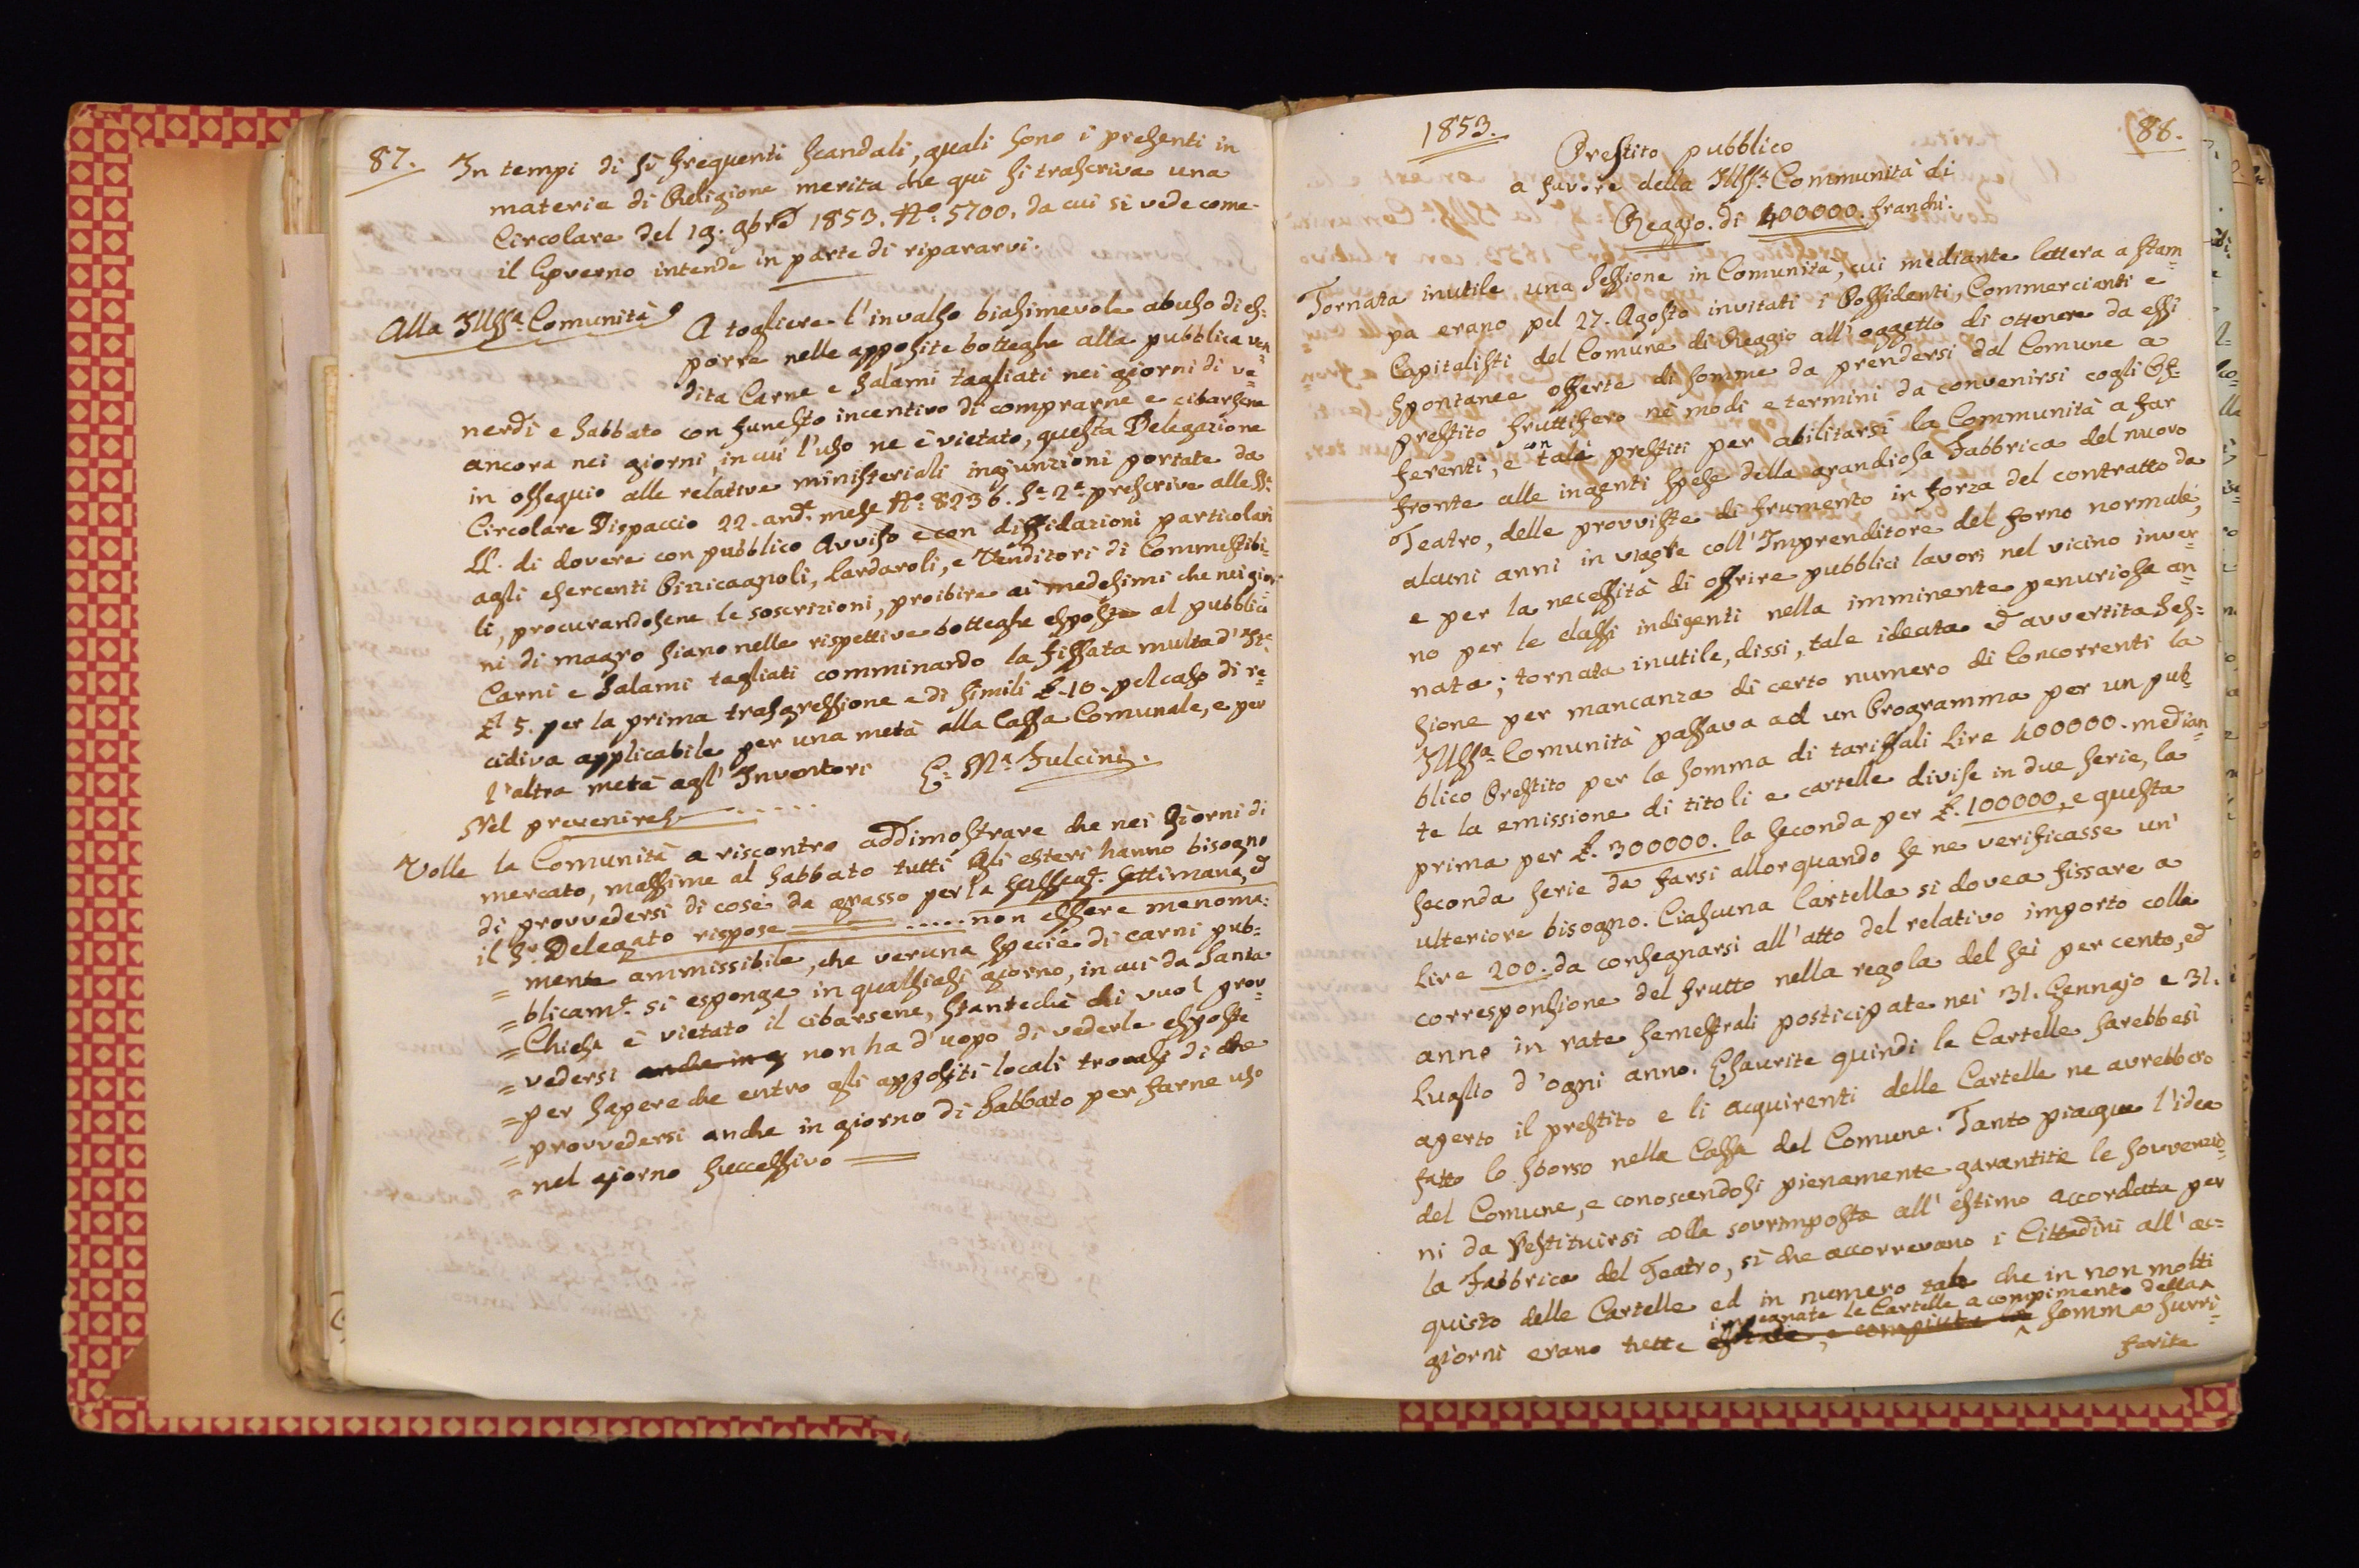 87.
In tempi di sì frequenti scandali, quali sono i presenti in
materia di Religione merita che qui si trascriva una
Circolare del 19. 9bre 1853. No. 5700. da cui si vede come
il Governo intende in parte di ripararvi.
Alla Illssa. Comunità
A togliere l'invalso biasimevole abuso di es=
porre nelle apposite botteghe alla pubblica ven=
dita Carne e Salami tagliati nei giorni di ve=
nerdì e Sabbato con funesto incentivo di comprarne e cibarsene
ancora nei giorni in cui l'uso ne è vietato, questa Delegazione
in ossequio alle relative ministeriali ingiunzioni portate da
Circolare Dispaccio 22. ande. mese No. 8236. Se. 2a. prescrive alle SS.
LL. di dovere con pubblico Avviso e con diffidazioni particolari
agli esercenti Pizzicagnoli, Lardaroli, e Venditori di Commestibi=
li, procurandosene le soscrizioni, proibire ai medesimi che nei gior=
ni di magro siano nelle rispettive botteghe esposte al pubblico
Carni e Salami tagliati comminando la fissata multa d'
£ 5. per la prima trasgressione e di simili £. 10. pel caso di re=
cidiva applicabile per una metà alla Cassa Comunale, e per
l'altra metà agl' Inventori
E. Ma. Fulcini.
Nel prevenire .....
Volle la Comunità a riscontro addimostrare che nei Giorni di
mercato, massime al Sabbato tutti gli esteri hanno bisogno
di provvedersi di cose da grasso per la susseg. settimana, ed
il Sr. Delegato rispose ..... non essere menoma=
= mente ammissibile, che veruna specie di carni pub=
= blicame. si esponga in qualsiasi giorno, in cui da Santa
= Chiesa è vietato il cibarsene, stanteché chi vuol prov=
= vedersi anche in g non ha d'uopo di vederle esposte
= per sapere che entro gli appositi locali trovasi di che
= provvedersi anche in giorno di Sabbato per farne uso
= nel giorno successivo
1853.
88.
Prestito pubblico
a favore della Illssa. Communità di
Reggio. di 400000. franchi.
Tornata inutile una Sessione in Comunità, cui mediante lettera a stam=
pa erano pel 27. Agosto invitati i Possidenti, Commercianti e
Capitalisti del Comune di Reggio all'oggetto di ottenere da essi
spontanee offerte di somme da prendersi dal Comune a
prestito fruttifero ne' modi e termini da convenirsi cogli Of=
ferenti, e con tali prestiti per abilitarsi la Communità a far
fronte alle ingenti spese della grandiosa Fabbrica del nuovo
Teatro, delle provviste di frumento in forza del contratto da
alcuni anni in viagre coll' Imprenditore del forno normale,
e per la necessità di offrire pubblici lavori nel vicino inver=
no per le classi indigenti nella imminente penuriosa an=
nata; tornata inutile, dissi, tale ideata ed avvertita Ses=
sione per mancanza di certo numero di Concorrenti la
Illssa. Comunità passava ad un Programma per un pub=
blico Prestito per la somma di tariffali Lire 400000. median=
te la emissione di titoli e cartelle divise in due serie, la
prima per £. 300000. la seconda per £. 100000, e questa
seconda serie da farsi allorquando se ne verificasse un'
ulteriore bisogno. Ciascuna Cartella si dovea fissare a
Lire 200. da consegnarsi all'atto del relativo importo colla
corresponsione del frutto nella regola del sei per cento, ed
anno in rate semestrali posticipate nei 31. Gennajo e 31.
Luglio d'ogni anno. Esaurite quindi le Cartelle sarebbesi
aperto il prestito e li acquirenti delle Cartelle ne avrebbero
fatto lo sborso nella Cassa del Comune. Tanto piacque l'idea
del Comune, e conoscendosi pienamente garantite le sovvenzio=
ni da restituirsi colla sovrimposta all' estimo accordata per
la Fabbrica del Teatro, sì che accorrevano i Cittadini all'ac=
quisto delle Cartelle ed in numero tale che in non molti
giorni erano tutte impegnate le Cartelle a compimento della somma surri=
ferita